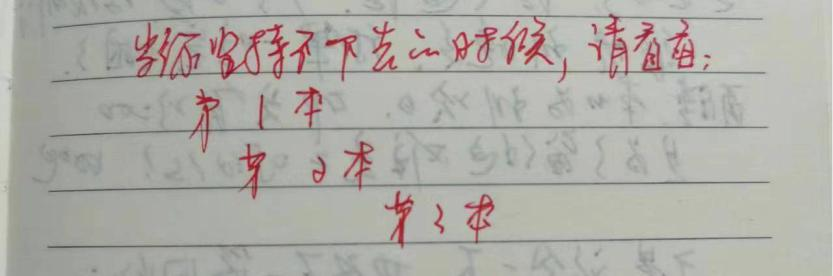 当你坚持不下去的时候，请看看：
第1本
第2本
第3本